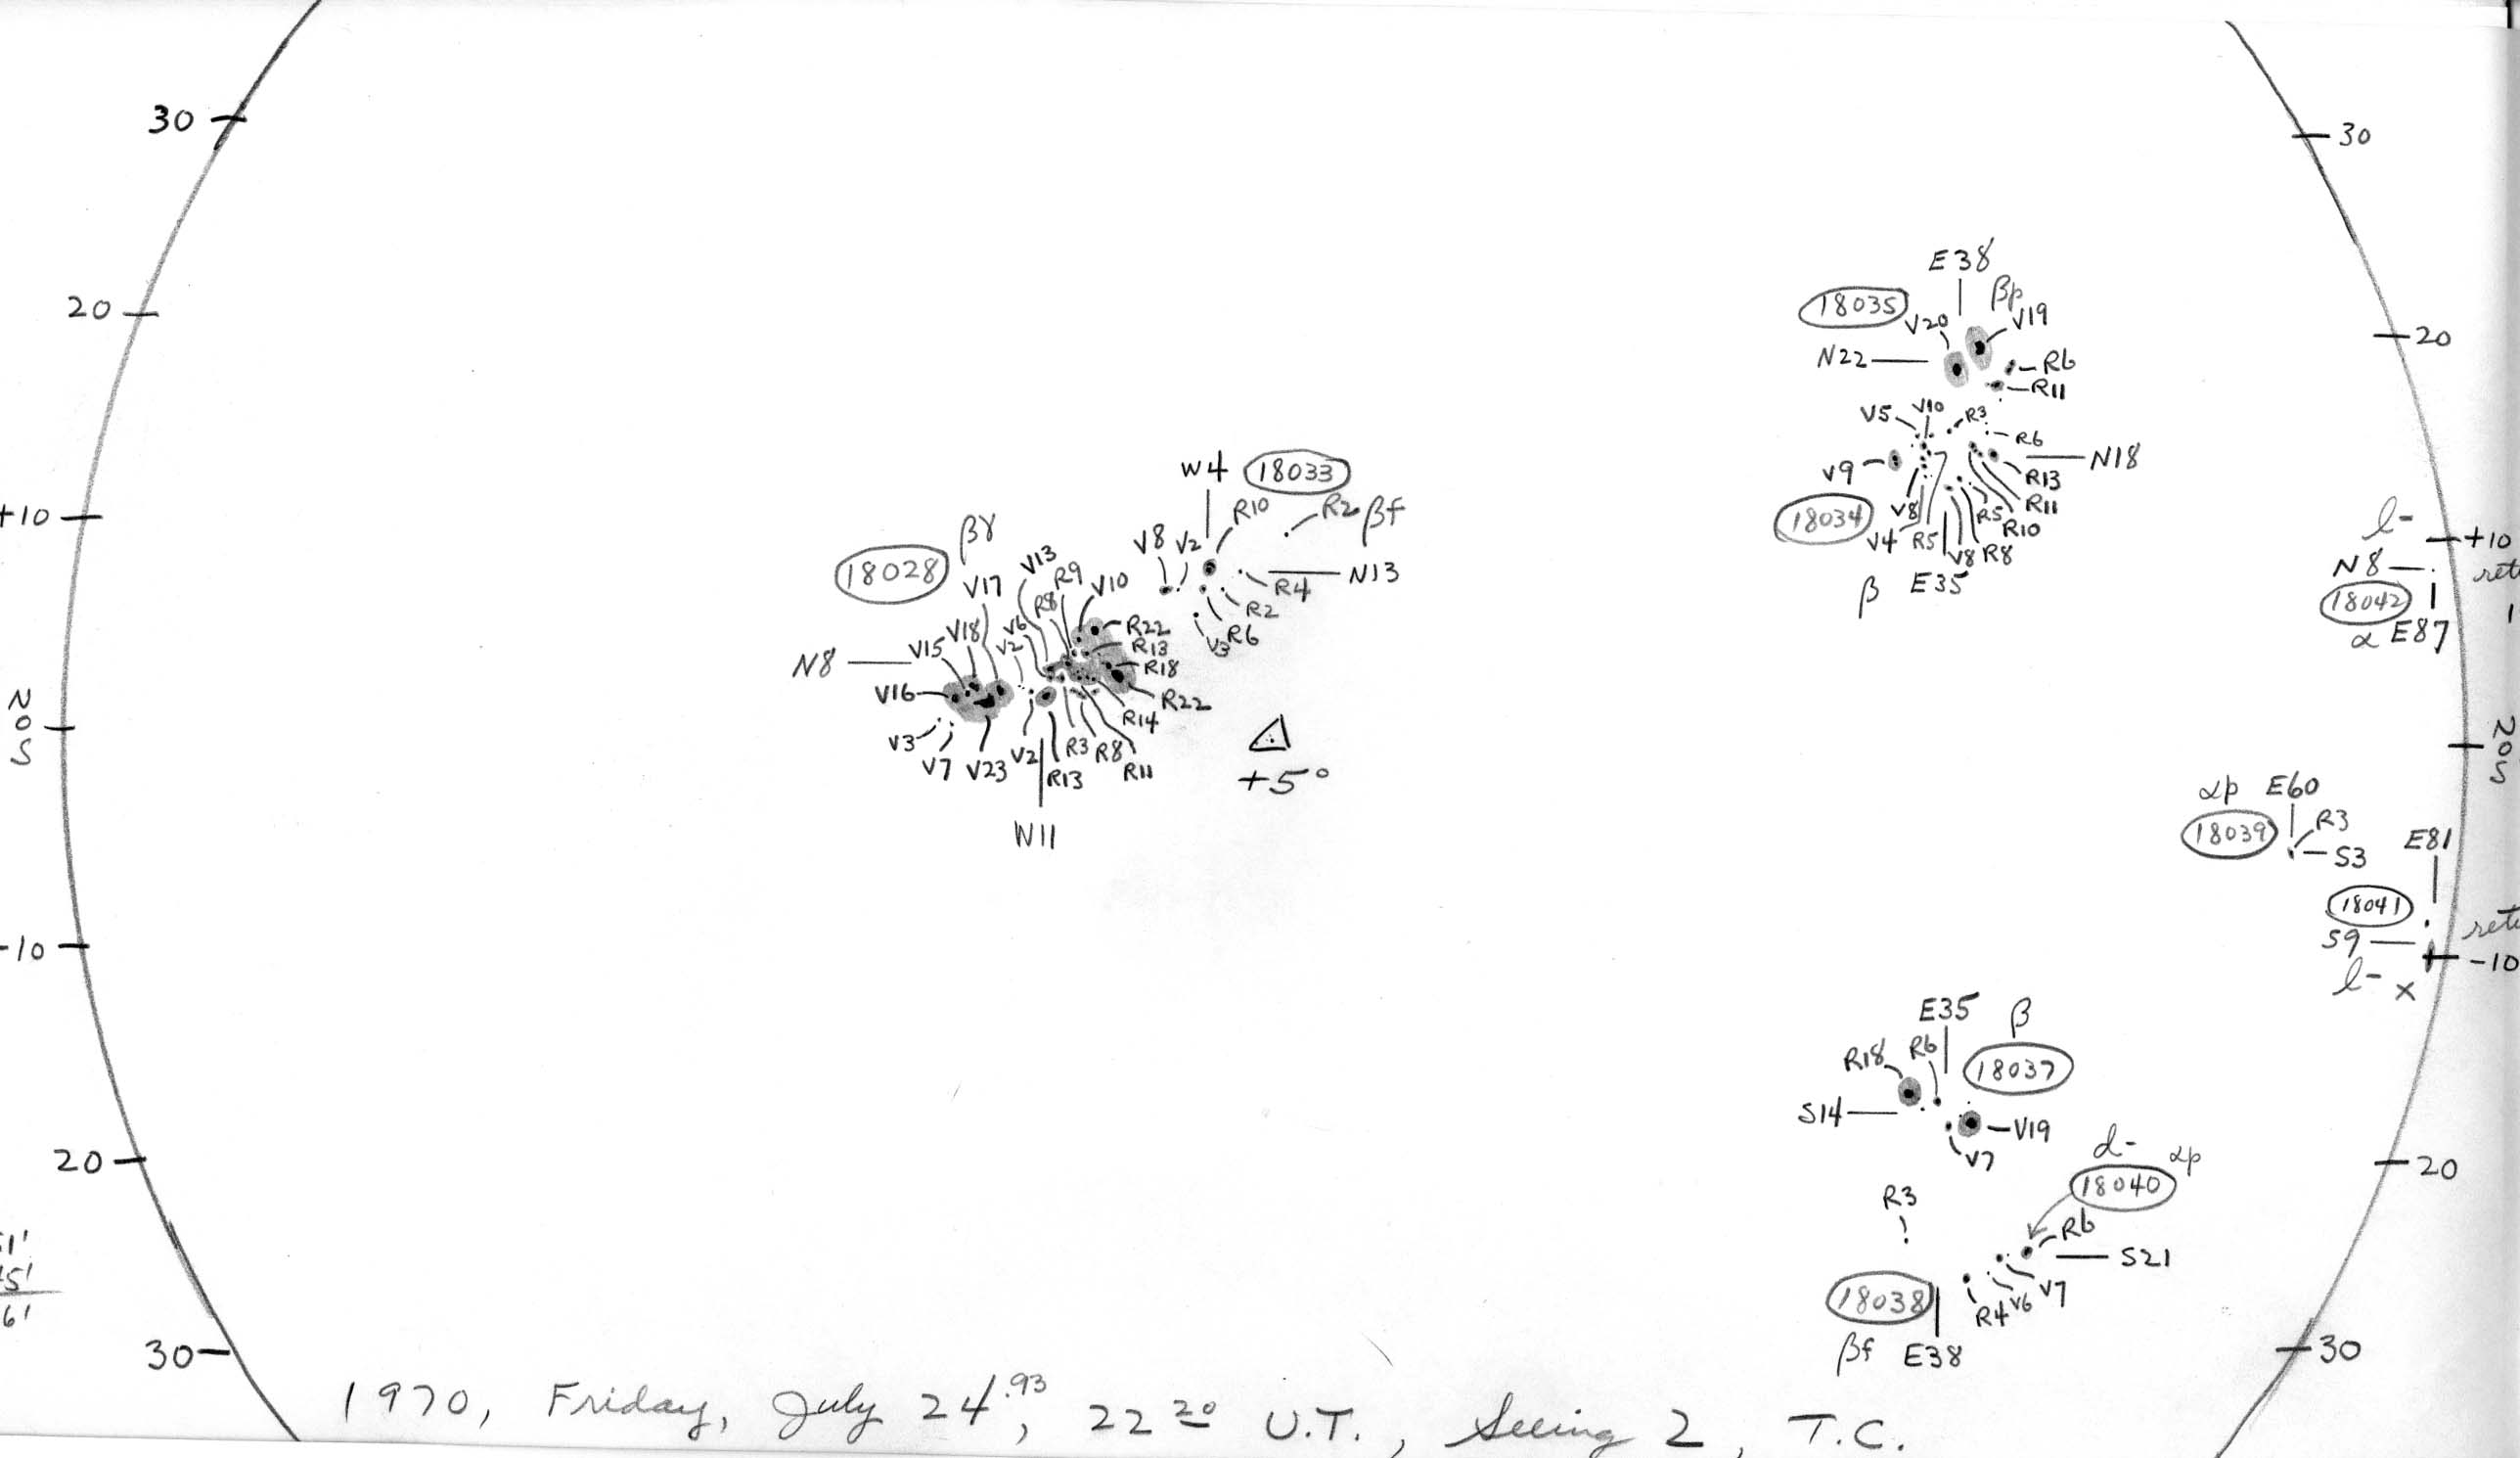 30
20
+10
N
0
S
-10
20
30
51'
6'
30
20
+10
N
0
S
-10
20
30
E38
18035
βp
V20
V19
N22
R6
R11
V5
V10
R3
R6
V9
N18
R13
R11
18034
V8
R5
R10
V4
R5
V8
R8
β
E35
W4
18033
R10
R2
βf
V8
V2
N13
R4
R2
R6
V3
βγ
18028
V17
V13
R9
V10
R8
V18
V6
R22
V15
V2
R13
N8
R18
V16
R22
R14
V3
V7
V23
V2
R13
R3
R8
R11
W11
+5°
l-
N8
18042
α E87
αp E60
18039
R3
S3
E81
18041
S9
l- x
E35
β
R18
R6
18037
S14
V19
V7
d-
αp
18040
R3
R6
S21
V7
V6
R4
18038
βf
E38
1970, Friday, July 24.93, 22 20 U.T., Seeing 2, T.C.